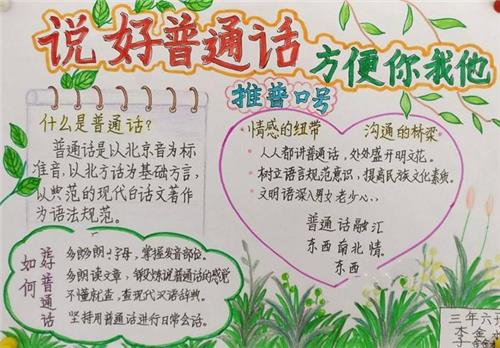 说好普通话
方便你我他
推普口号
什么是普通话?
普通话是以北京音为标
准音，以北方话为基础方言，
以典范的现代白话文著作
为语法规范。
情感的纽带 沟通的桥梁
人人都讲普通话，处处盛开明文花。
树立语言规范意识，提高民族文化素质。
文明语深入男女老少心
普通话融汇
东西南北情
东西
如何
好普通话
多朗朗字母，掌握发音部位。
多朗读文章，锻炼说普通话的感觉
不懂就查，查现代汉语辞典。
坚持用普通话进行日常会话。
三年六班
李金